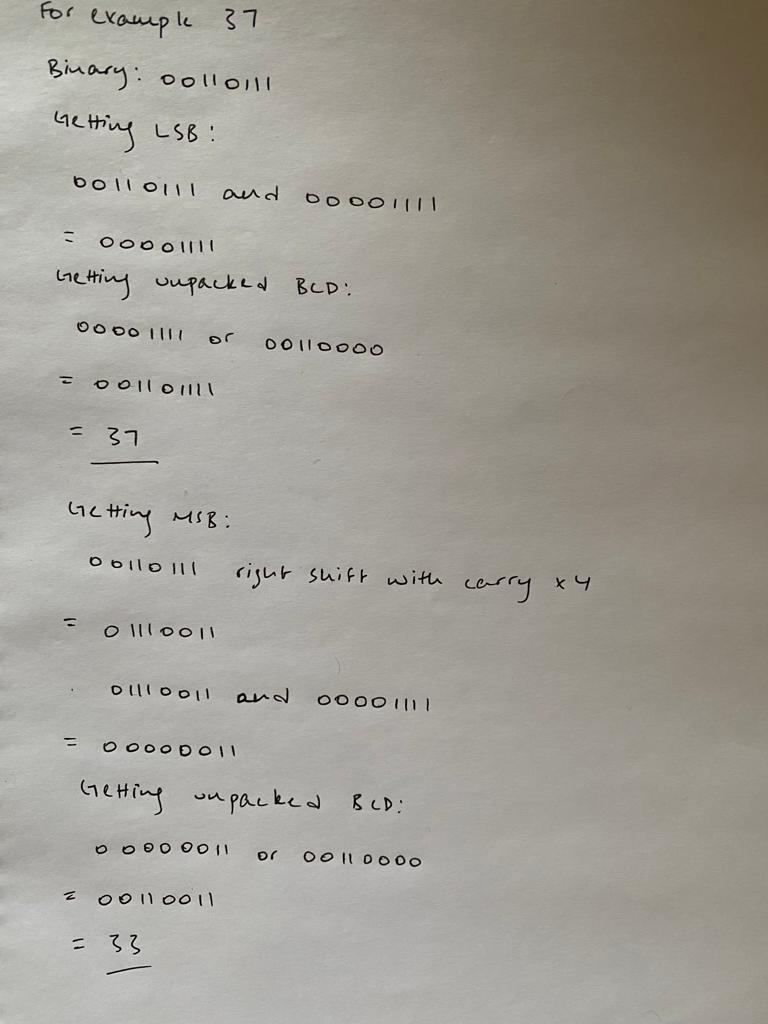 For example 37
Binary: 00110111
Getting LSB:
00110111 and 00001111
= 00001111
Getting unpacked BCD:
00001111 or 00110000
= 001101111
= 37
Getting MSB:
00110111 right shift with carry x 4
= 01110011
01110011 and 00001111
= 00000011
Getting unpacked BCD:
00000011 or 00110000
= 00110011
= 33